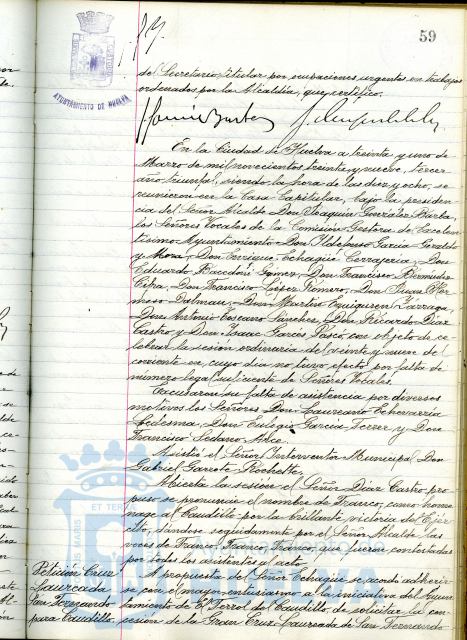 59
AYUNTAMIENTO DE HUELVA
del Secretario titular por ocupaciones urgentes en trabajos
ordenados por la Alcaldía, que certifico.
En la Ciudad de Huelva a treinta y uno de
Marzo de mil novecientos treinta y nueve, tercer
año triunfal, siendo la hora de las diez y ocho, se
reunieron en la Casa Capitular, bajo la presiden-
cia del Señor Alcalde Don Joaquín González Barba,
los Señores Vocales de la Comisión Gestora del Excelen-
tísimo Ayuntamiento Don Ildefonso García
y Mora, Don Enrique Echagüe Cerrajería, Don
Eduardo Gómez, Don Francisco Bermúdez
Don Francisco López Romero, Don Juan Her-
moso Dalmau, Don Martín Eguiguren Lázzaga,
Don Antonio Toscano Sánchez, Don Ricardo Díaz
Castro y Don Isaac García Pascó, con objeto de ce-
lebrar la sesión ordinaria del veinte y nueve del
corriente en cuyo día no tuvo efecto por falta de
número legal suficiente de Señores Vocales.
Excusaron su falta de asistencia por diversos
motivos los Señores Don Laureano Echevarría
Ledesma, Don Eulogio García Ferrer y Don
Francisco Sedano Arce.
Asistió el Señor Interventor Municipal Don
Gabriel Garrote Rochette.
Abierta la sesión el Señor Díaz Castro pro-
puso se pronuncie el nombre de Franco, como home-
nage al Caudillo por la brillante victoria del Ejér-
cito, dándose seguidamente por el Señor Alcalde las
voces de Franco, Franco, Franco, que fueron contestadas
por todos los asistentes al acto.
Petición Cruz
Laureada
San Fernando
para Caudillo
A propuesta del Señor Echagüe se acordó adherir-
se con el mayor entusiasmo a la iniciativa del Ayun-
tamiento de El Ferrol del Caudillo, de solicitar la con-
cesión de la Gran Cruz Laureada de San Fernando